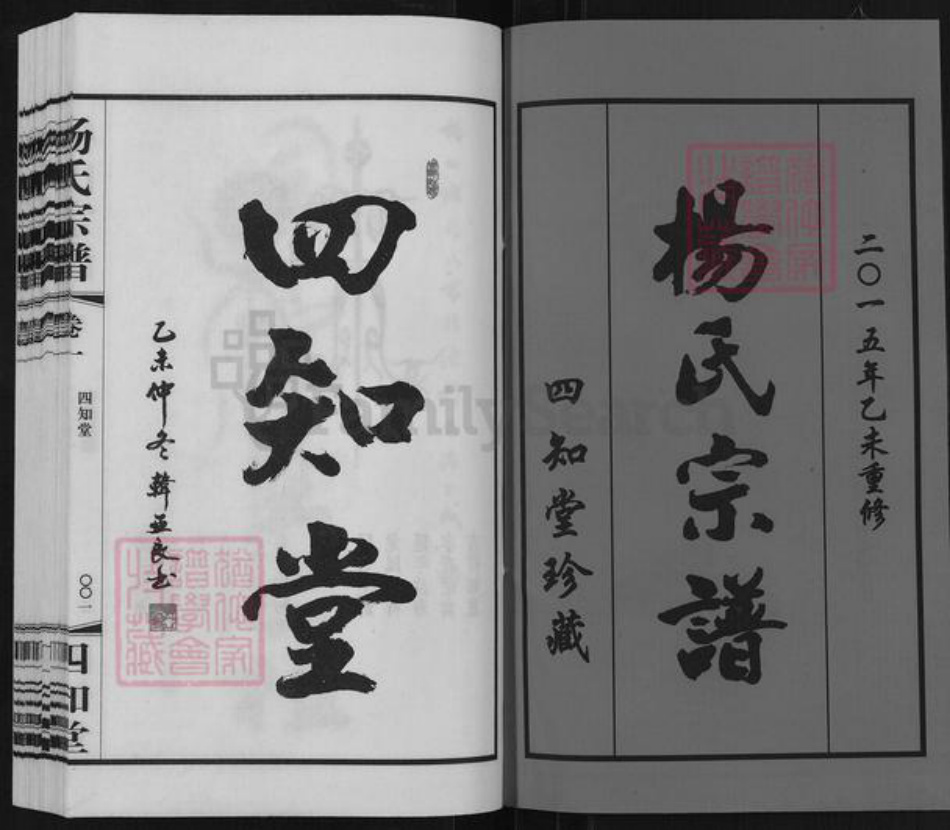 二〇一五年乙未重修
楊氏宗譜
四知堂珍藏
四知堂
乙未仲冬韓亚良书
杨氏宗譜
卷一
四知堂
〇〇一
四知堂
FamilySearch